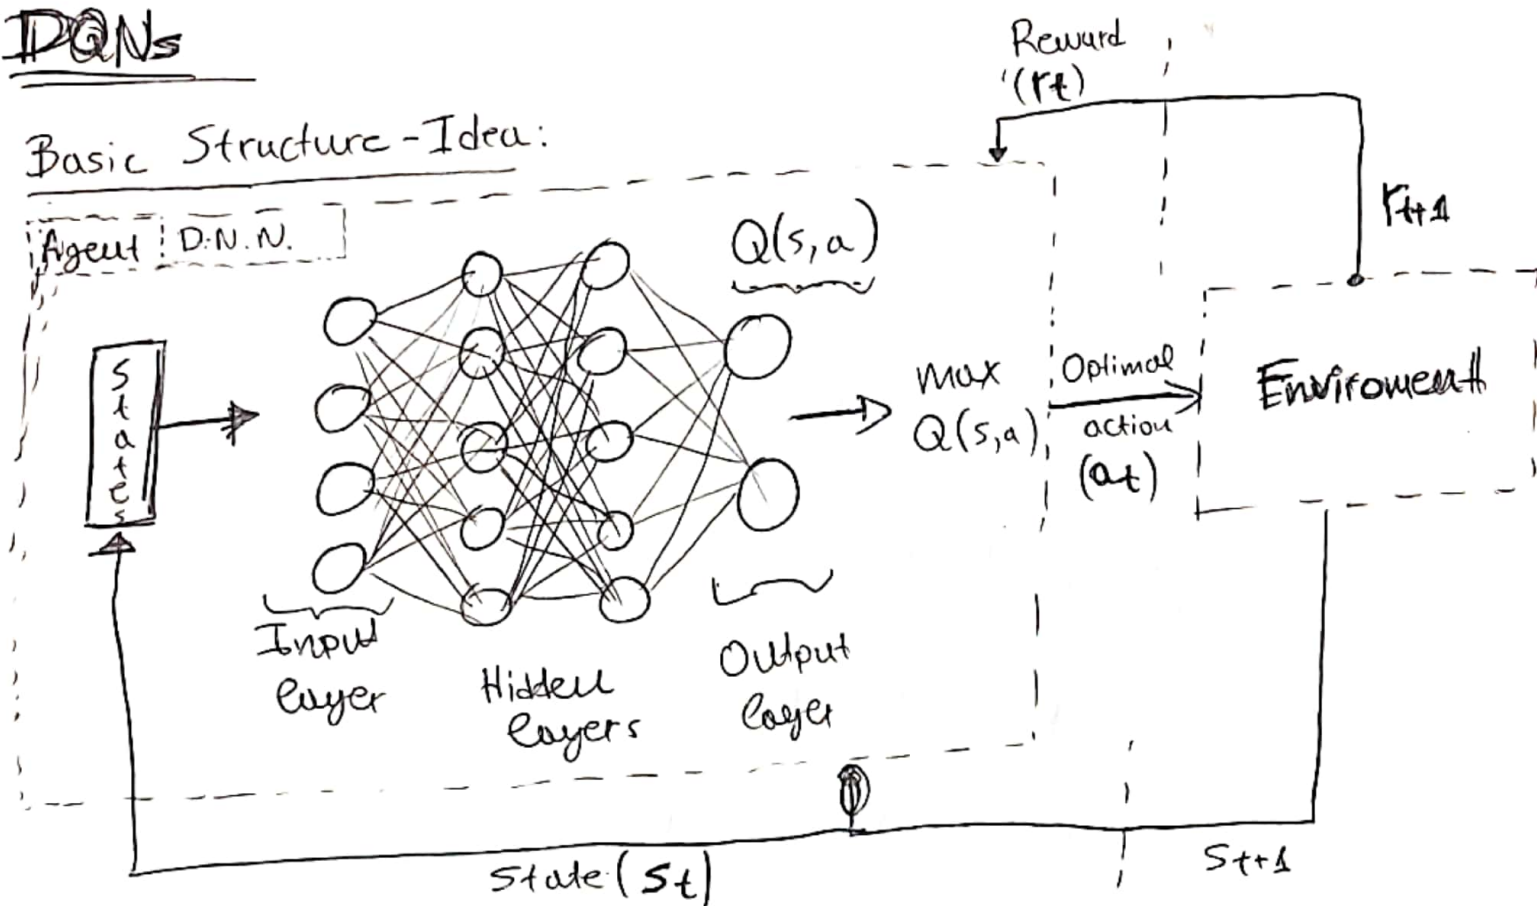 DQNs
Basic Structure-Idea:
Reward
(rt)
rt+1
Agent D.N.N.
Q(s,a)
States
max
Q(s,a)
Optimal
action
(at)
Enviroment
Input
layer
Hidden
layers
Output
layer
State (St)
St+1